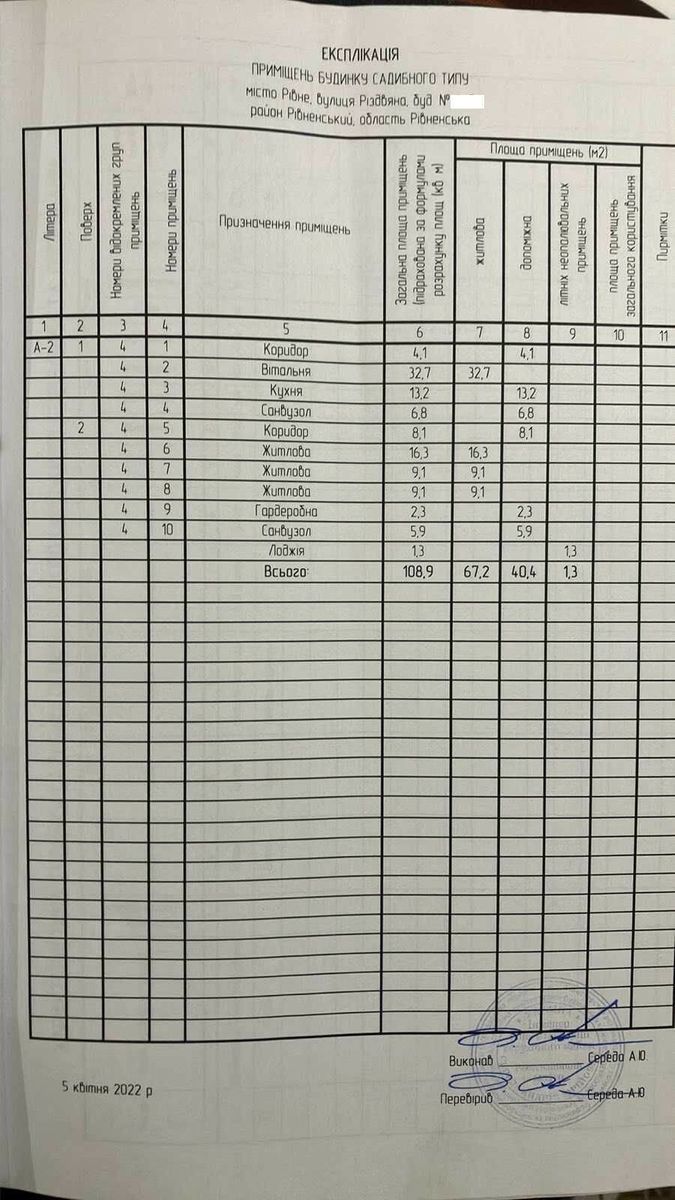 ЕКСПЛІКАЦІЯ
ПРИМІЩЕНЬ БУДИНКУ САДИБНОГО ТИПУ
місто Рівне, вулиця Різдвяна, буд №
район Рівненський, область Рівненська
Літера
Поверх
Номери відокремлених груп приміщень
Номери приміщень
Призначення приміщень
Загальна площа приміщень (підрахована за формулами розрахунку площ (кв м)
Площа приміщень (м2)
житлова
допоміжна
літніх неопалювальних приміщень
площа приміщень загального користування
Пирмітки
1 2 3 4 5 6 7 8 9 10 11
А-2 1 4 1 Коридор 4,1 4,1
4 2 Вітальня 32,7 32,7
4 3 Кухня 13,2 13,2
4 4 Санвузол 6,8 6,8
2 4 5 Коридор 8,1 8,1
4 6 Житлова 16,3 16,3
4 7 Житлова 9,1 9,1
4 8 Житлова 9,1 9,1
4 9 Гардеробна 2,3 2,3
4 10 Санвузол 5,9 5,9
Лоджія 1,3 1,3
Всього: 108,9 67,2 40,4 1,3
Виконав Середа А.Ю.
5 квітня 2022 р
Перевірив Середа А.Ю